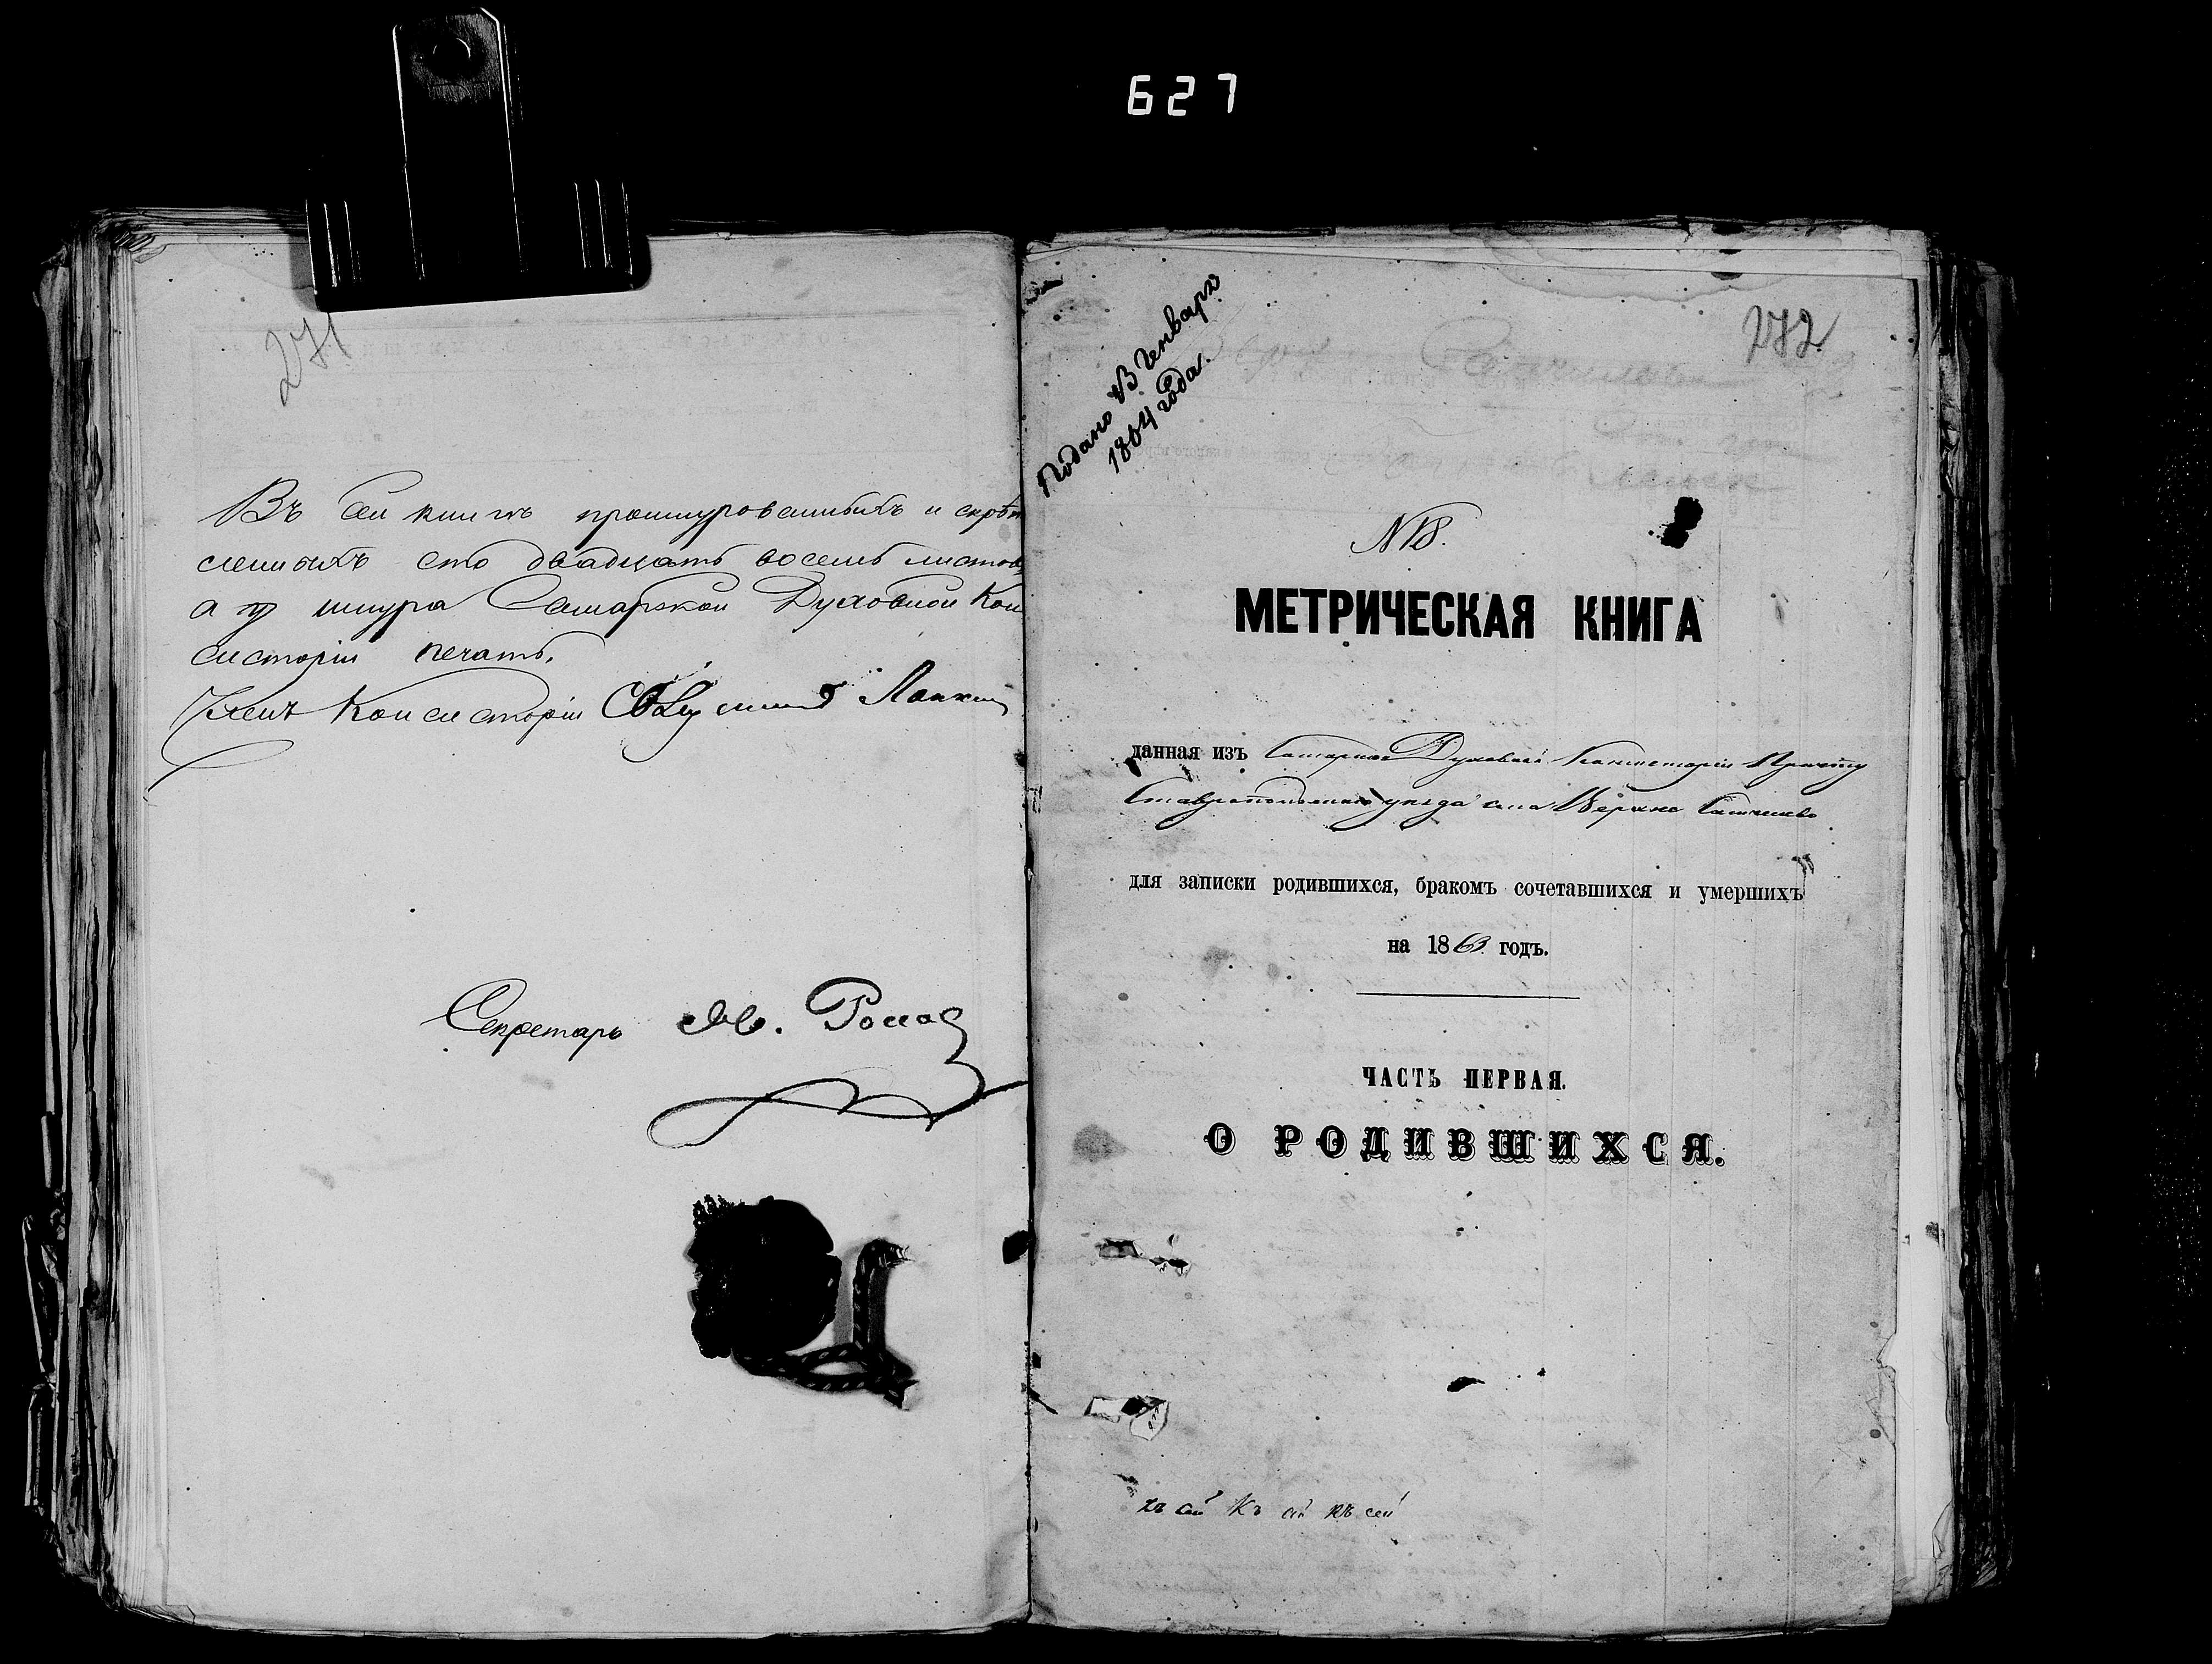 627
271
Въ сей книгѣ прошнурованныхъ и скрѣп
ленныхъ сто двадцать восемь листовъ
а у шнура Самарской Духовной Кон
систоріи печать.
Членъ Консисторіи
Секретарь
272
Подано 13 Генваря
1864 года.
N 18.
МЕТРИЧЕСКАЯ КНИГА
данная изъ Самарской Духовной Консисторіи Причту
Ставропольскаго уѣзда села Верхне
для записки родившихся, бракомъ сочетавшихся и умершихъ
на 1863 годъ.
ЧАСТЬ ПЕРВАЯ.
О РОДИВШИХСЯ.
къ сей Къ сей къ сей